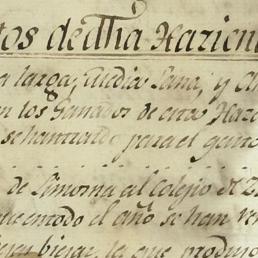 tos de dha Hazien
a larga, media Lana, y A
n los Ganados de esta Haz
se han traido para el gasto
de Simorna al Colejio de Z
que en todo el año se han ve
la que produjo